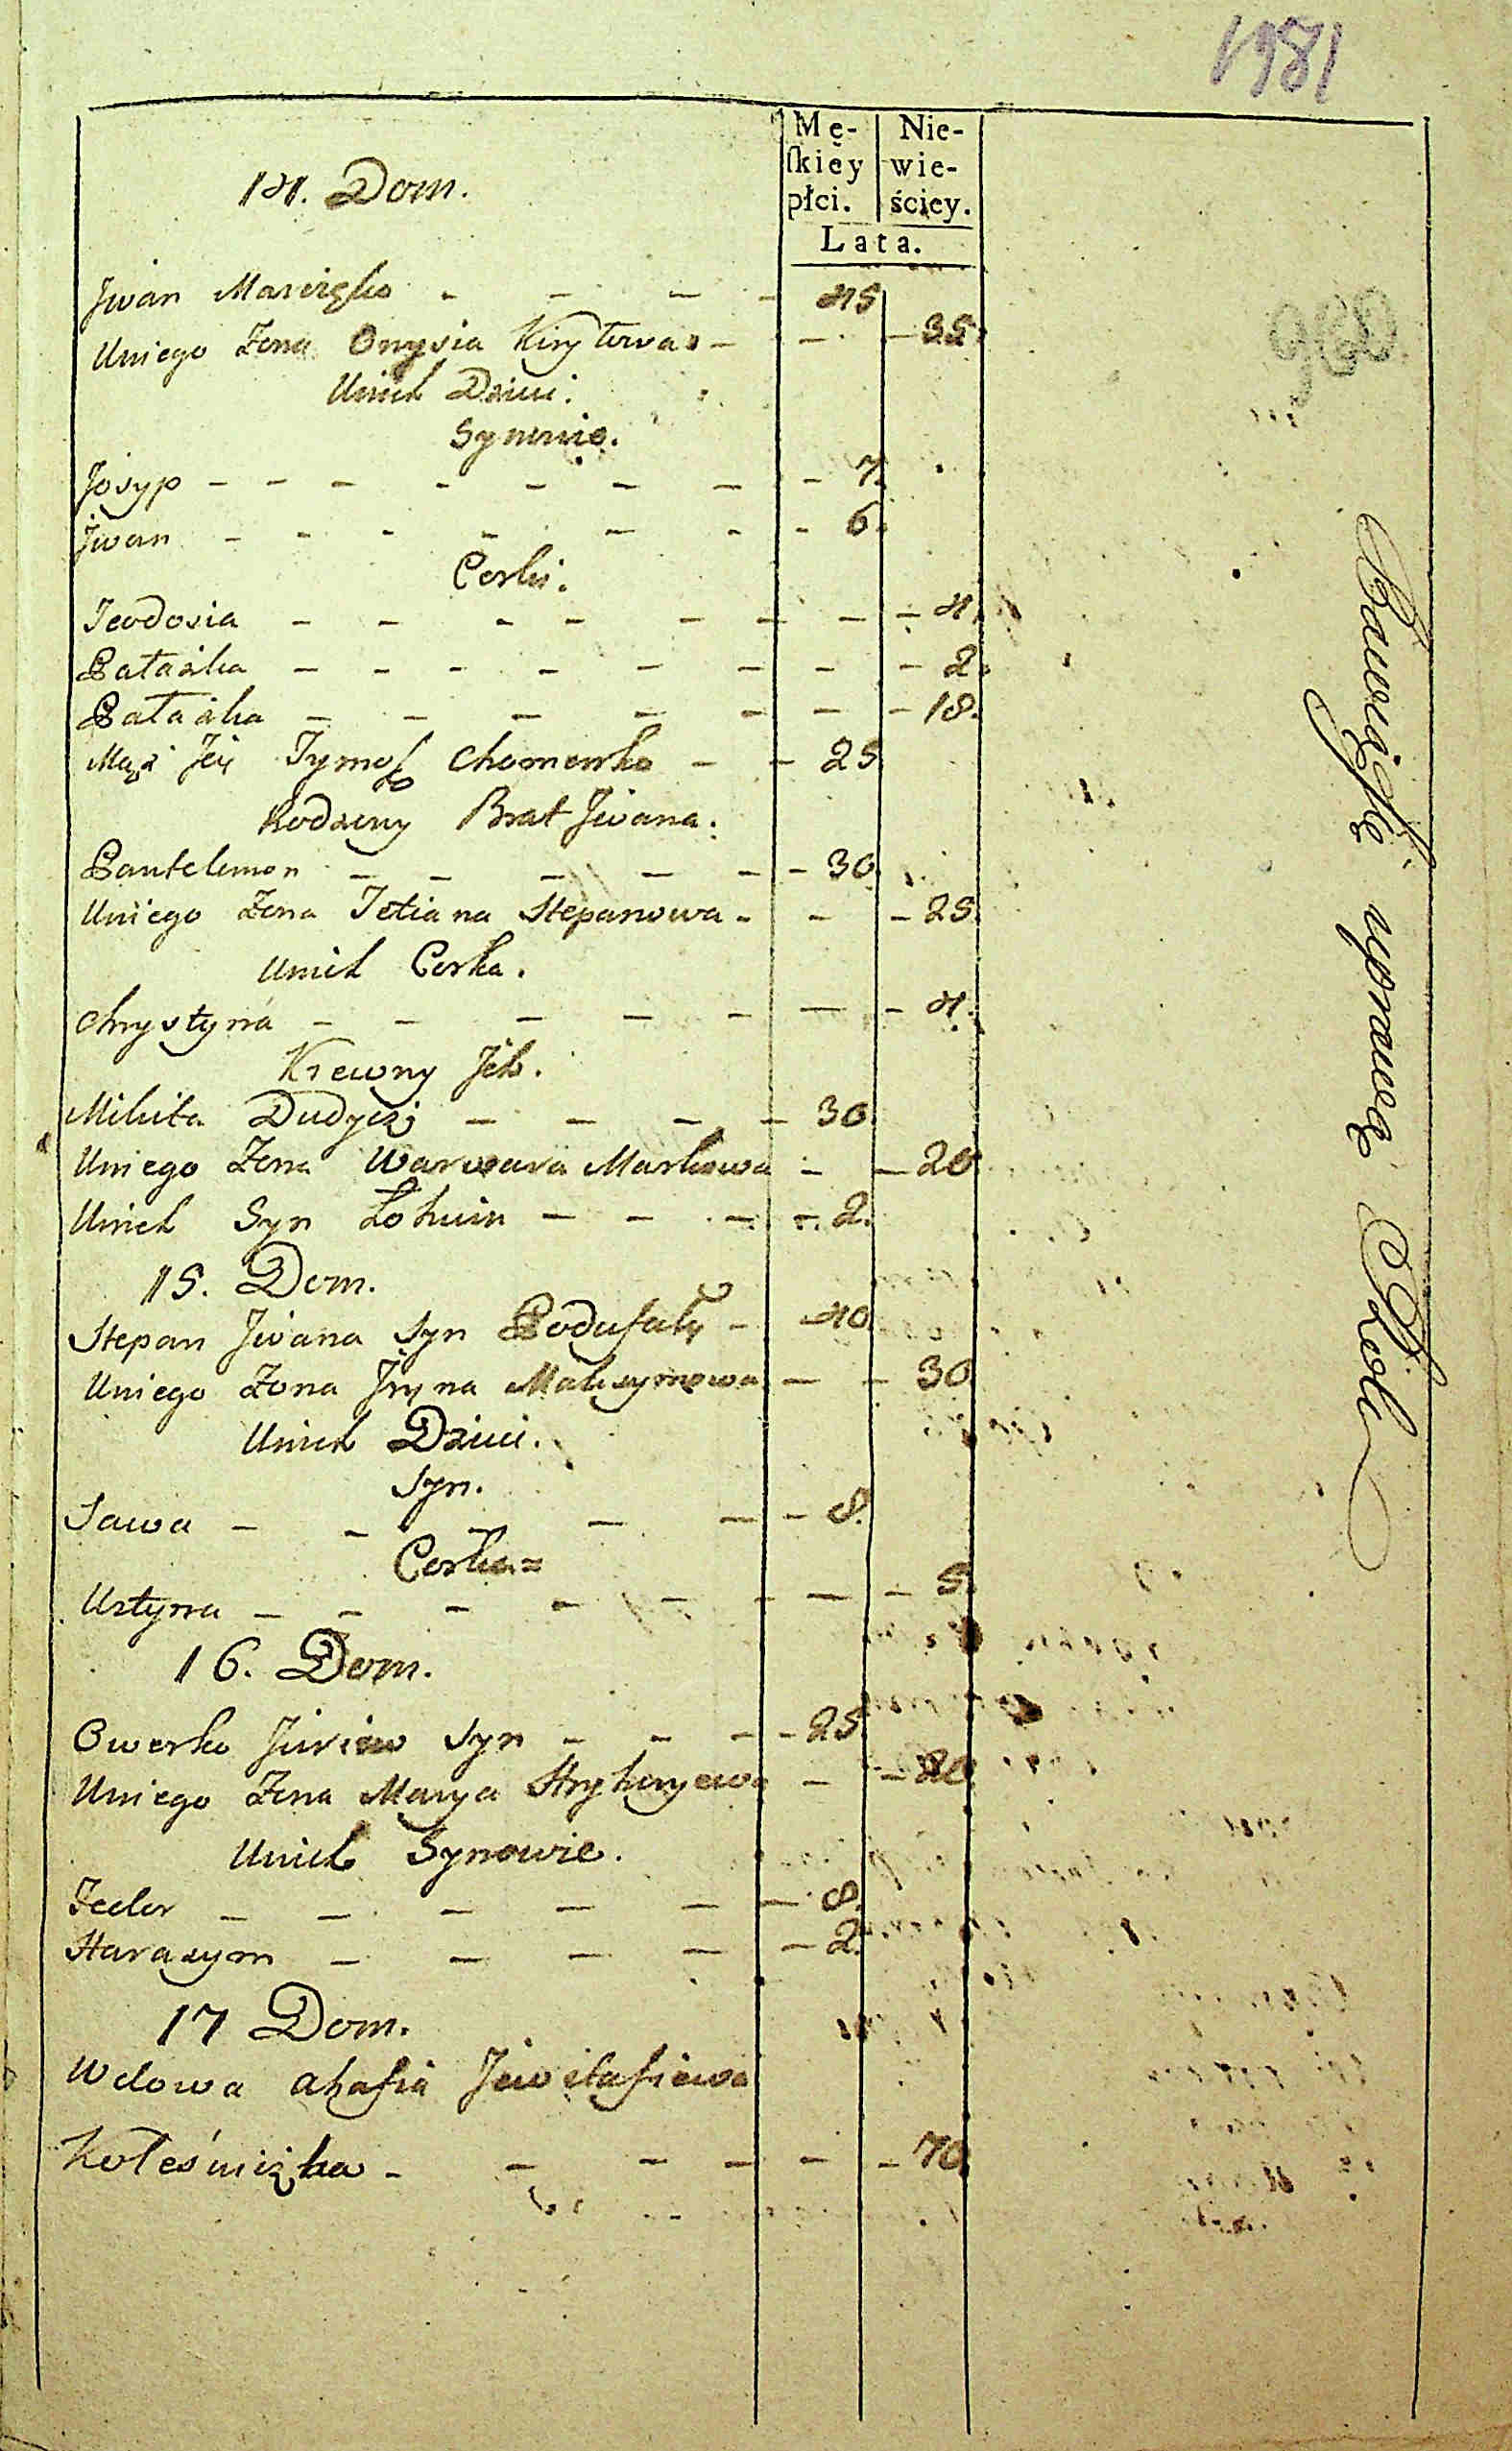 1981
Mę- Nie-
ſkiéy wie-
płci. ściey.
Lata.
14. Dom.
Jwan Marcięko - - - - 45
Uniego Żona Onysia Kiryłowa - - - 35.
Unich Dzieci.
Synowie.
Josyp - - - - - - - - 7.
Jwan - - - - - - - 6.
Corki.
Teodosia - - - - - - - - 4.
Pałażka - - - - - - - - 2.
Pałażka - - - - - - - 18.
Mąż Jey Tymofy Chomenko - - 25
Rodzony Brat Jwana.
Pantelemon - - - - - - 30
Uniego Żona Tetiana Stepanowa - - - 25.
Unich Corka.
Chrystyna - - - - - - - 4.
Krewny Jch.
Mikita Dudycz - - - - 30.
Uniego Żona Warwara Markowa - - 20
Unich Syn Łohwin - - - - 2.
15. Dom.
Stepan Jwana Syn Podufały - 40
Uniego Żona Jryna Maksymowa - - 30
Unich Dzieci.
Syn.
Sawa - - - - - - 8.
Corka
Ustyna - - - - - - - - 5.
16. Dom.
Owerko Juriew Syn - - - - 25
Uniego Żona Marya Hryhoryewa - - 20
Unich Synowie.
Fedor - - - - - - 8.
Harasym - - - - - 2.
17 Dom.
Wdowa Ahafia Jewstafiewa
Kołeśniczka - - - - - - 70.